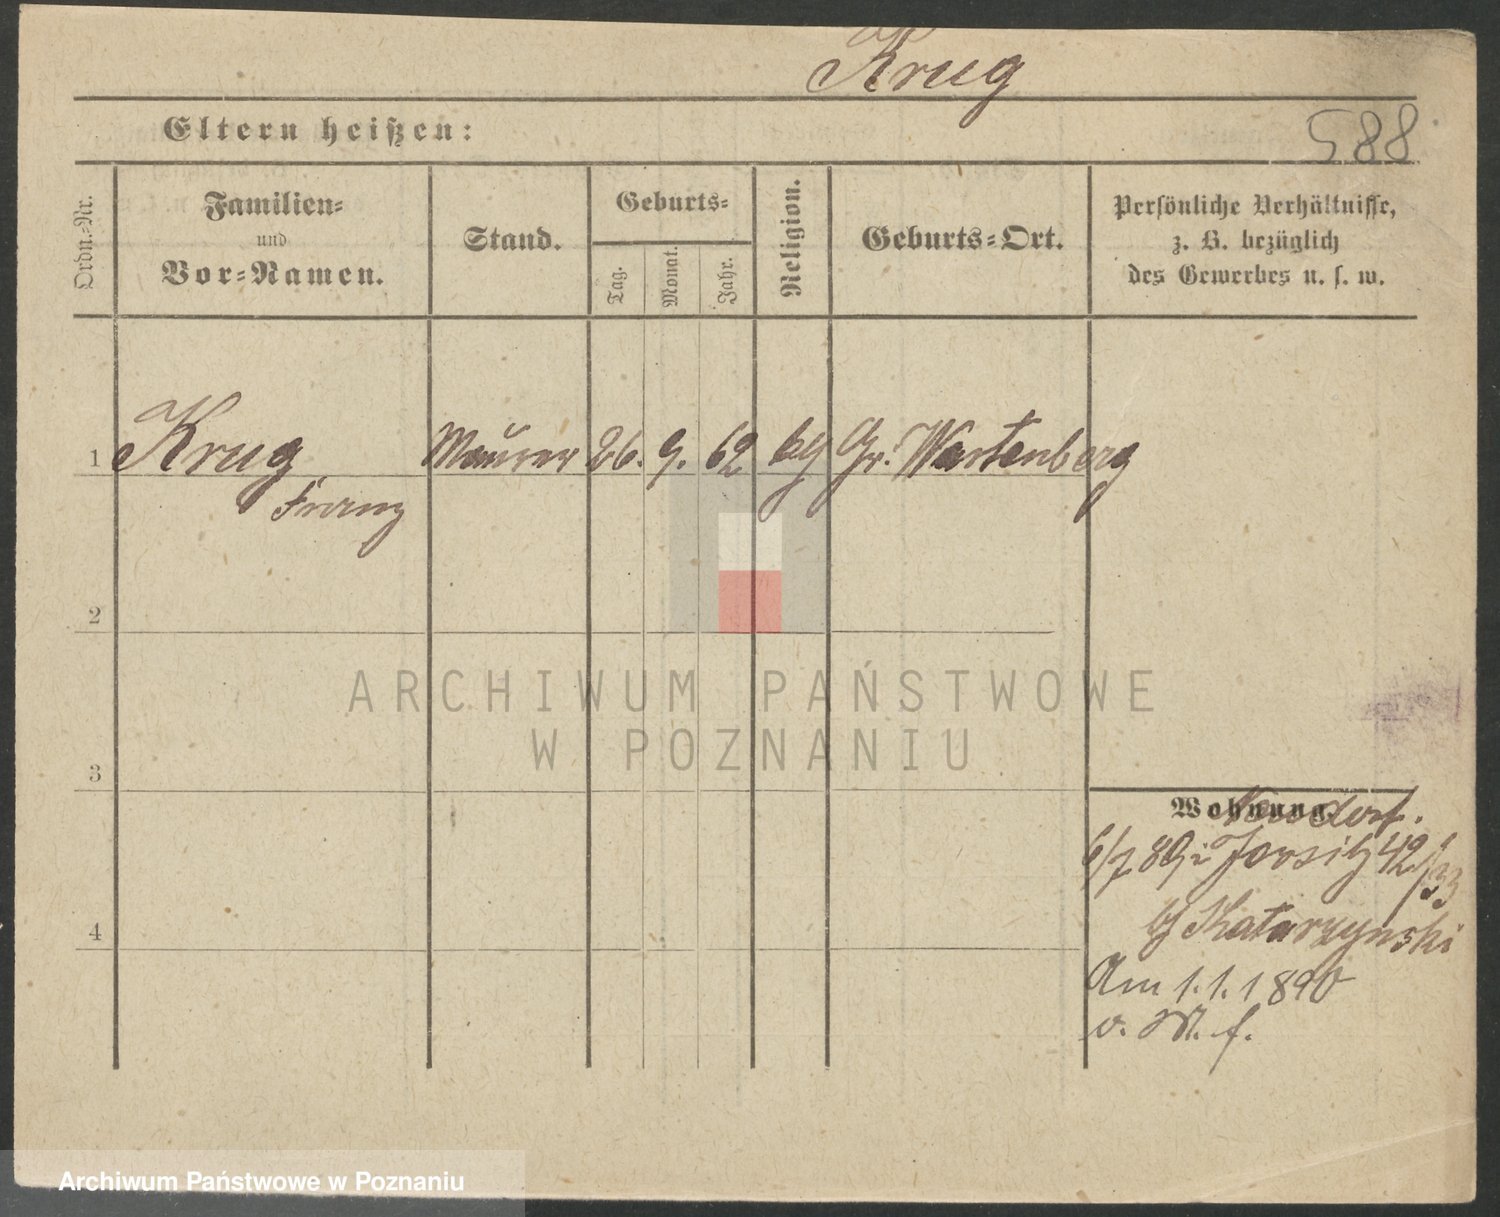 Krug
Eltern heißen:
588
Ordn.-Nr.
Familien-
und
Vor-Namen.
Stand.
Geburts-
Tag.
Monat.
Jahr.
Religion.
Geburts-Ort.
Persönliche Verhältnisse,
z. B. bezüglich
des Gewerbes u. s. w.
1 Krug Maurer 26. 9. 62 kg Gr. Wartenberg
Franz
2
ARCHIWUM PAŃSTWOWE
W POZNANIU
3
Wohnung.
6/7 89 Jersitz 42/33
4
b/ Katarzynski
Am 1.1.1890
v. M. f.
Archiwum Państwowe w Poznaniu